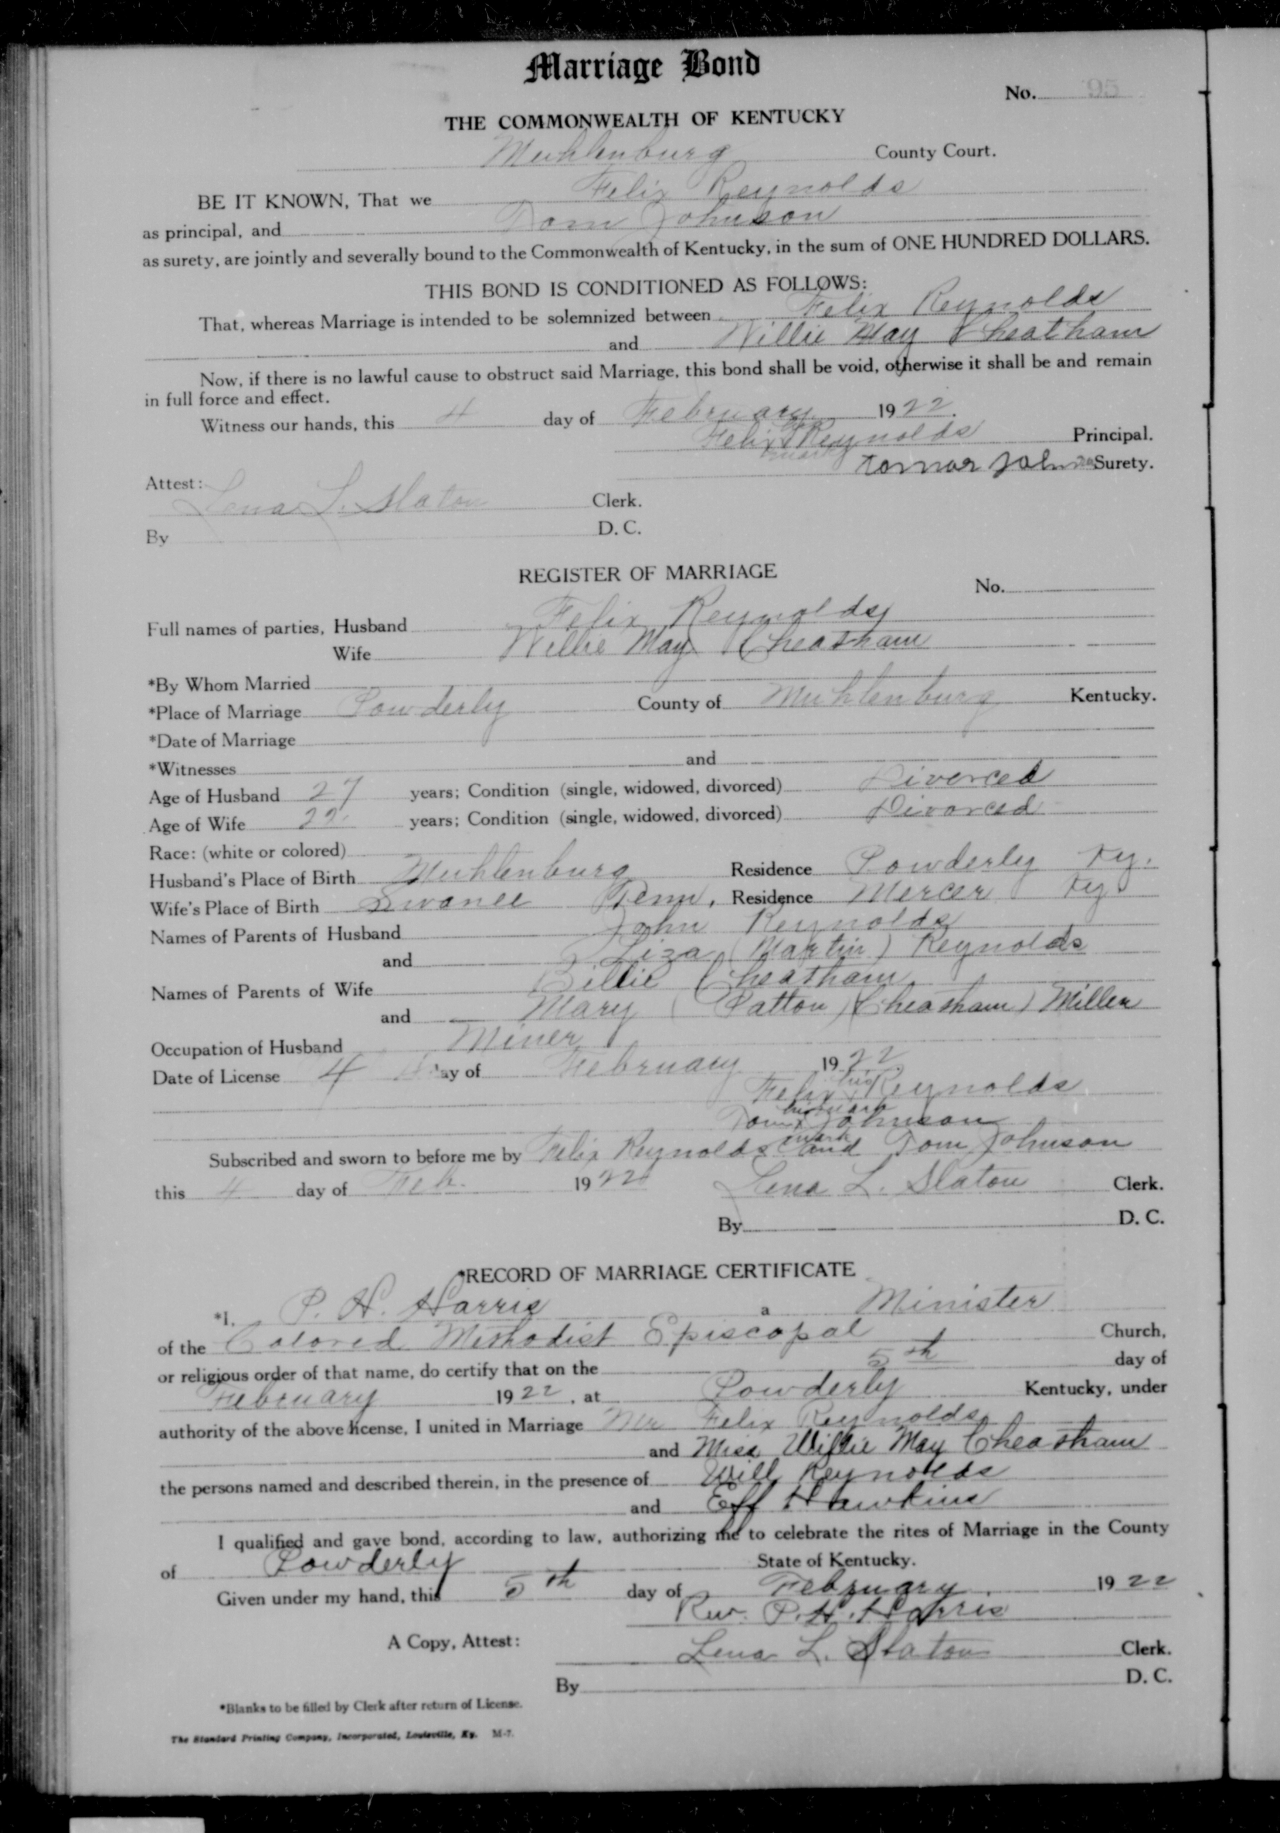 Marriage Bond
No. 95
THE COMMONWEALTH OF KENTUCKY
Muhlenburg County Court.
BE IT KNOWN, That we Felix Reynolds
as principal, and Tom Johnson
as surety, are jointly and severally bound to the Commonwealth of Kentucky, in the sum of ONE HUNDRED DOLLARS.
THIS BOND IS CONDITIONED AS FOLLOWS:
That, whereas Marriage is intended to be solemnized between Felix Reynolds
and Willie May Cheatham
Now, if there is no lawful cause to obstruct said Marriage, this bond shall be void, otherwise it shall be and remain
in full force and effect.
Witness our hands, this 4 day of February 1922.
Felix his x mark Reynolds Principal.
Surety.
Attest:
Lena L. Slaton Clerk.
By D. C.
REGISTER OF MARRIAGE
No.
Full names of parties, Husband Felix Reynolds
Wife Willie May Cheatham
*By Whom Married
*Place of Marriage Powderly County of Muhlenburg Kentucky.
*Date of Marriage
*Witnesses and
Age of Husband 27 years; Condition (single, widowed, divorced) Divorced
Age of Wife 22 years; Condition (single, widowed, divorced) Divorced
Race: (white or colored)
Husband's Place of Birth Muhlenburg Residence Powderly Ky.
Wife's Place of Birth Swanee Tenn. Residence Mercer Ky
Names of Parents of Husband John Reynolds
and Liza (Martin) Reynolds
Names of Parents of Wife Billie Cheatham
and Mary (Patton) (Cheatham) Miller
Occupation of Husband Miner
Date of License 4 day of February 1922
Felix his x mark Reynolds
Tom his x mark Johnson
Subscribed and sworn to before me by Felix Reynolds and Tom Johnson
this 4 day of Feb. 1922 Lena L. Slaton Clerk.
By D. C.
*RECORD OF MARRIAGE CERTIFICATE
*I, P. H. Harris a Minister
of the Colored Methodist Episcopal Church,
or religious order of that name, do certify that on the 5th day of
February 1922, at Powderly Kentucky, under
authority of the above license, I united in Marriage Mr Felix Reynolds
and Miss Willie May Cheatham
the persons named and described therein, in the presence of Will Reynolds
and Eff Hawkins
I qualified and gave bond, according to law, authorizing me to celebrate the rites of Marriage in the County
of Powderly State of Kentucky.
Given under my hand, this 5th day of February 1922
Rev. P. H. Harris
A Copy, Attest:
Lena L. Slaton Clerk.
By D. C.
*Blanks to be filled by Clerk after return of License.
The Standard Printing Company, Incorporated, Louisville, Ky. M-7.